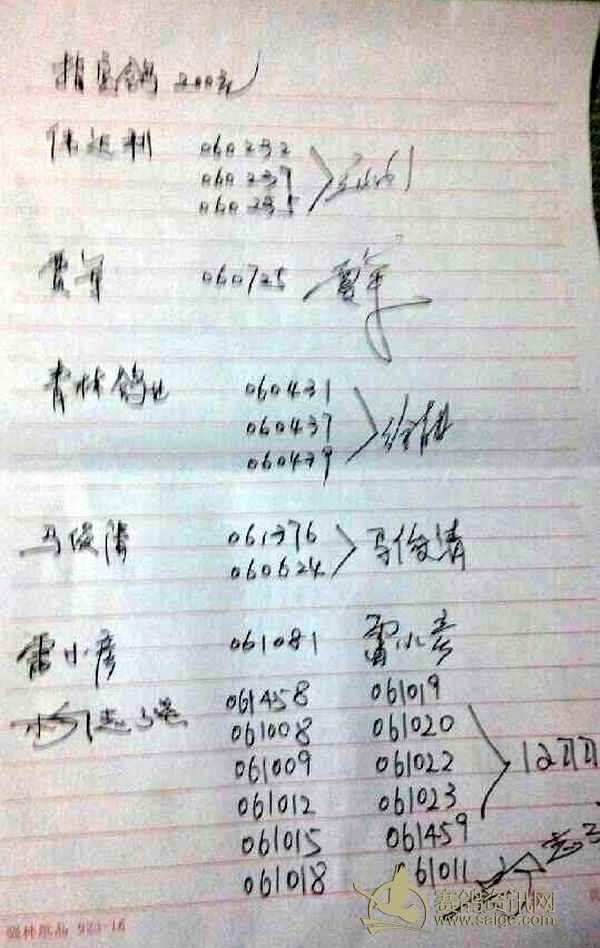 指定鸽 200元
060232
060237
060235
费军 060725 费军
青林鸽业 060431
060437
060439
马俊清 061376 马俊清
060624
雷小彦 061081 雷小彦
杨志强 061458 061019
061008 061020
061009 061022 12羽
061012 061023
061015 061459
061018 061011
赛鸽资讯网
www.saige.com
923-16